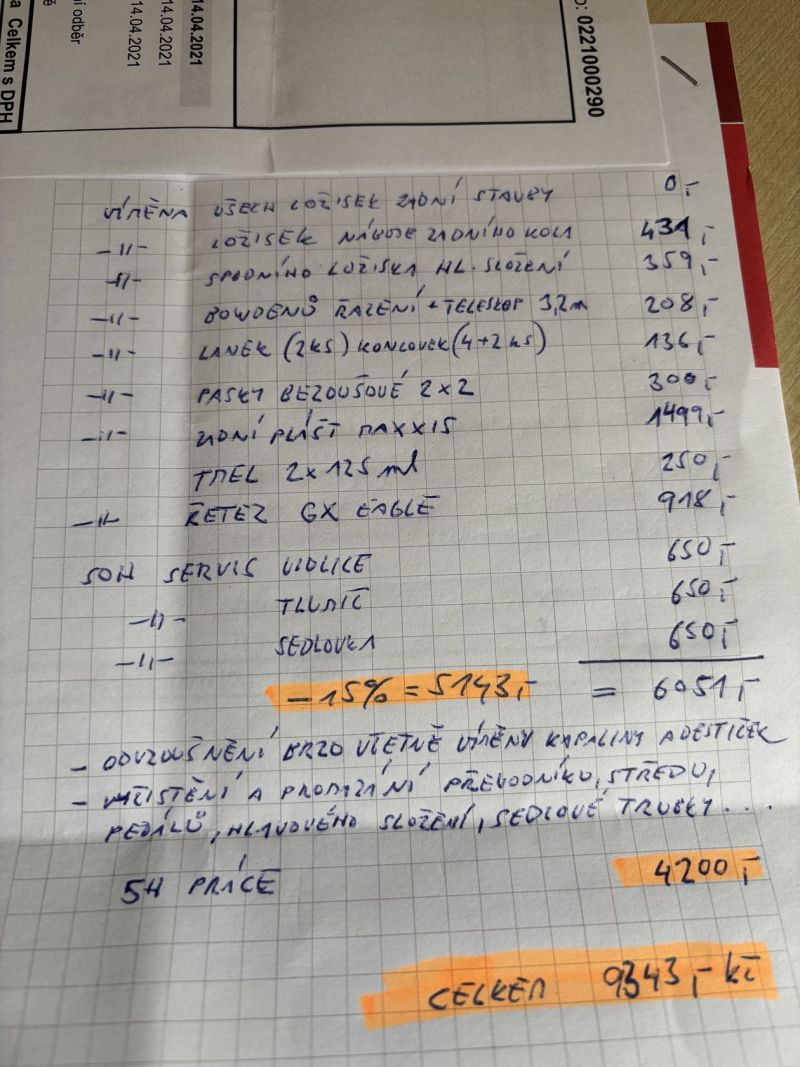 a Celkem s DPH
í odběr
14.04.2021
14.04.2021
14.04.2021
0221000290
VÍMĚNA VŠECH LOŽISEK ZADNÍ STAVBY 0,-
-11- LOŽISEK NÁBOJE ZADNÍHO KOLA 431,-
-11- SPODNÍHO LOŽISKA HL. SLOŽENÍ 359,-
-11- BOWDENŮ ŘAZENÍ + TELESKOP 3,2m 208,-
-11- LANEK (2KS) KONCOVEK (4+2 KS) 136,-
-11- PASKY BEZDUŠOVÉ 2x2 300,-
-11- ZADNÍ PLÁŠŤ MAXXIS 1499,-
TMEL 2x125 ml 250,-
-11- ŘETEZ GX EAGLE 918,-
50H SERVIS VIDLICE 650,-
-11- TLUMIČ 650,-
-11- SEDLOVKA 650,-
-15% = 5143,- = 6051,-
- ODVZDUŠNĚNÍ BRZD VČETNĚ VÍMĚNY KAPALINY A DESTIČEK
- VYČISTĚNÍ A PROMAZÁNÍ PŘEVODNÍKU, STŘEDU,
PEDÁLŮ, HLAVOVÉHO SLOŽENÍ, SEDLOVÉ TRUBKY...
5H PRÁCE 4200,-
CELKEM 9343,- KČ